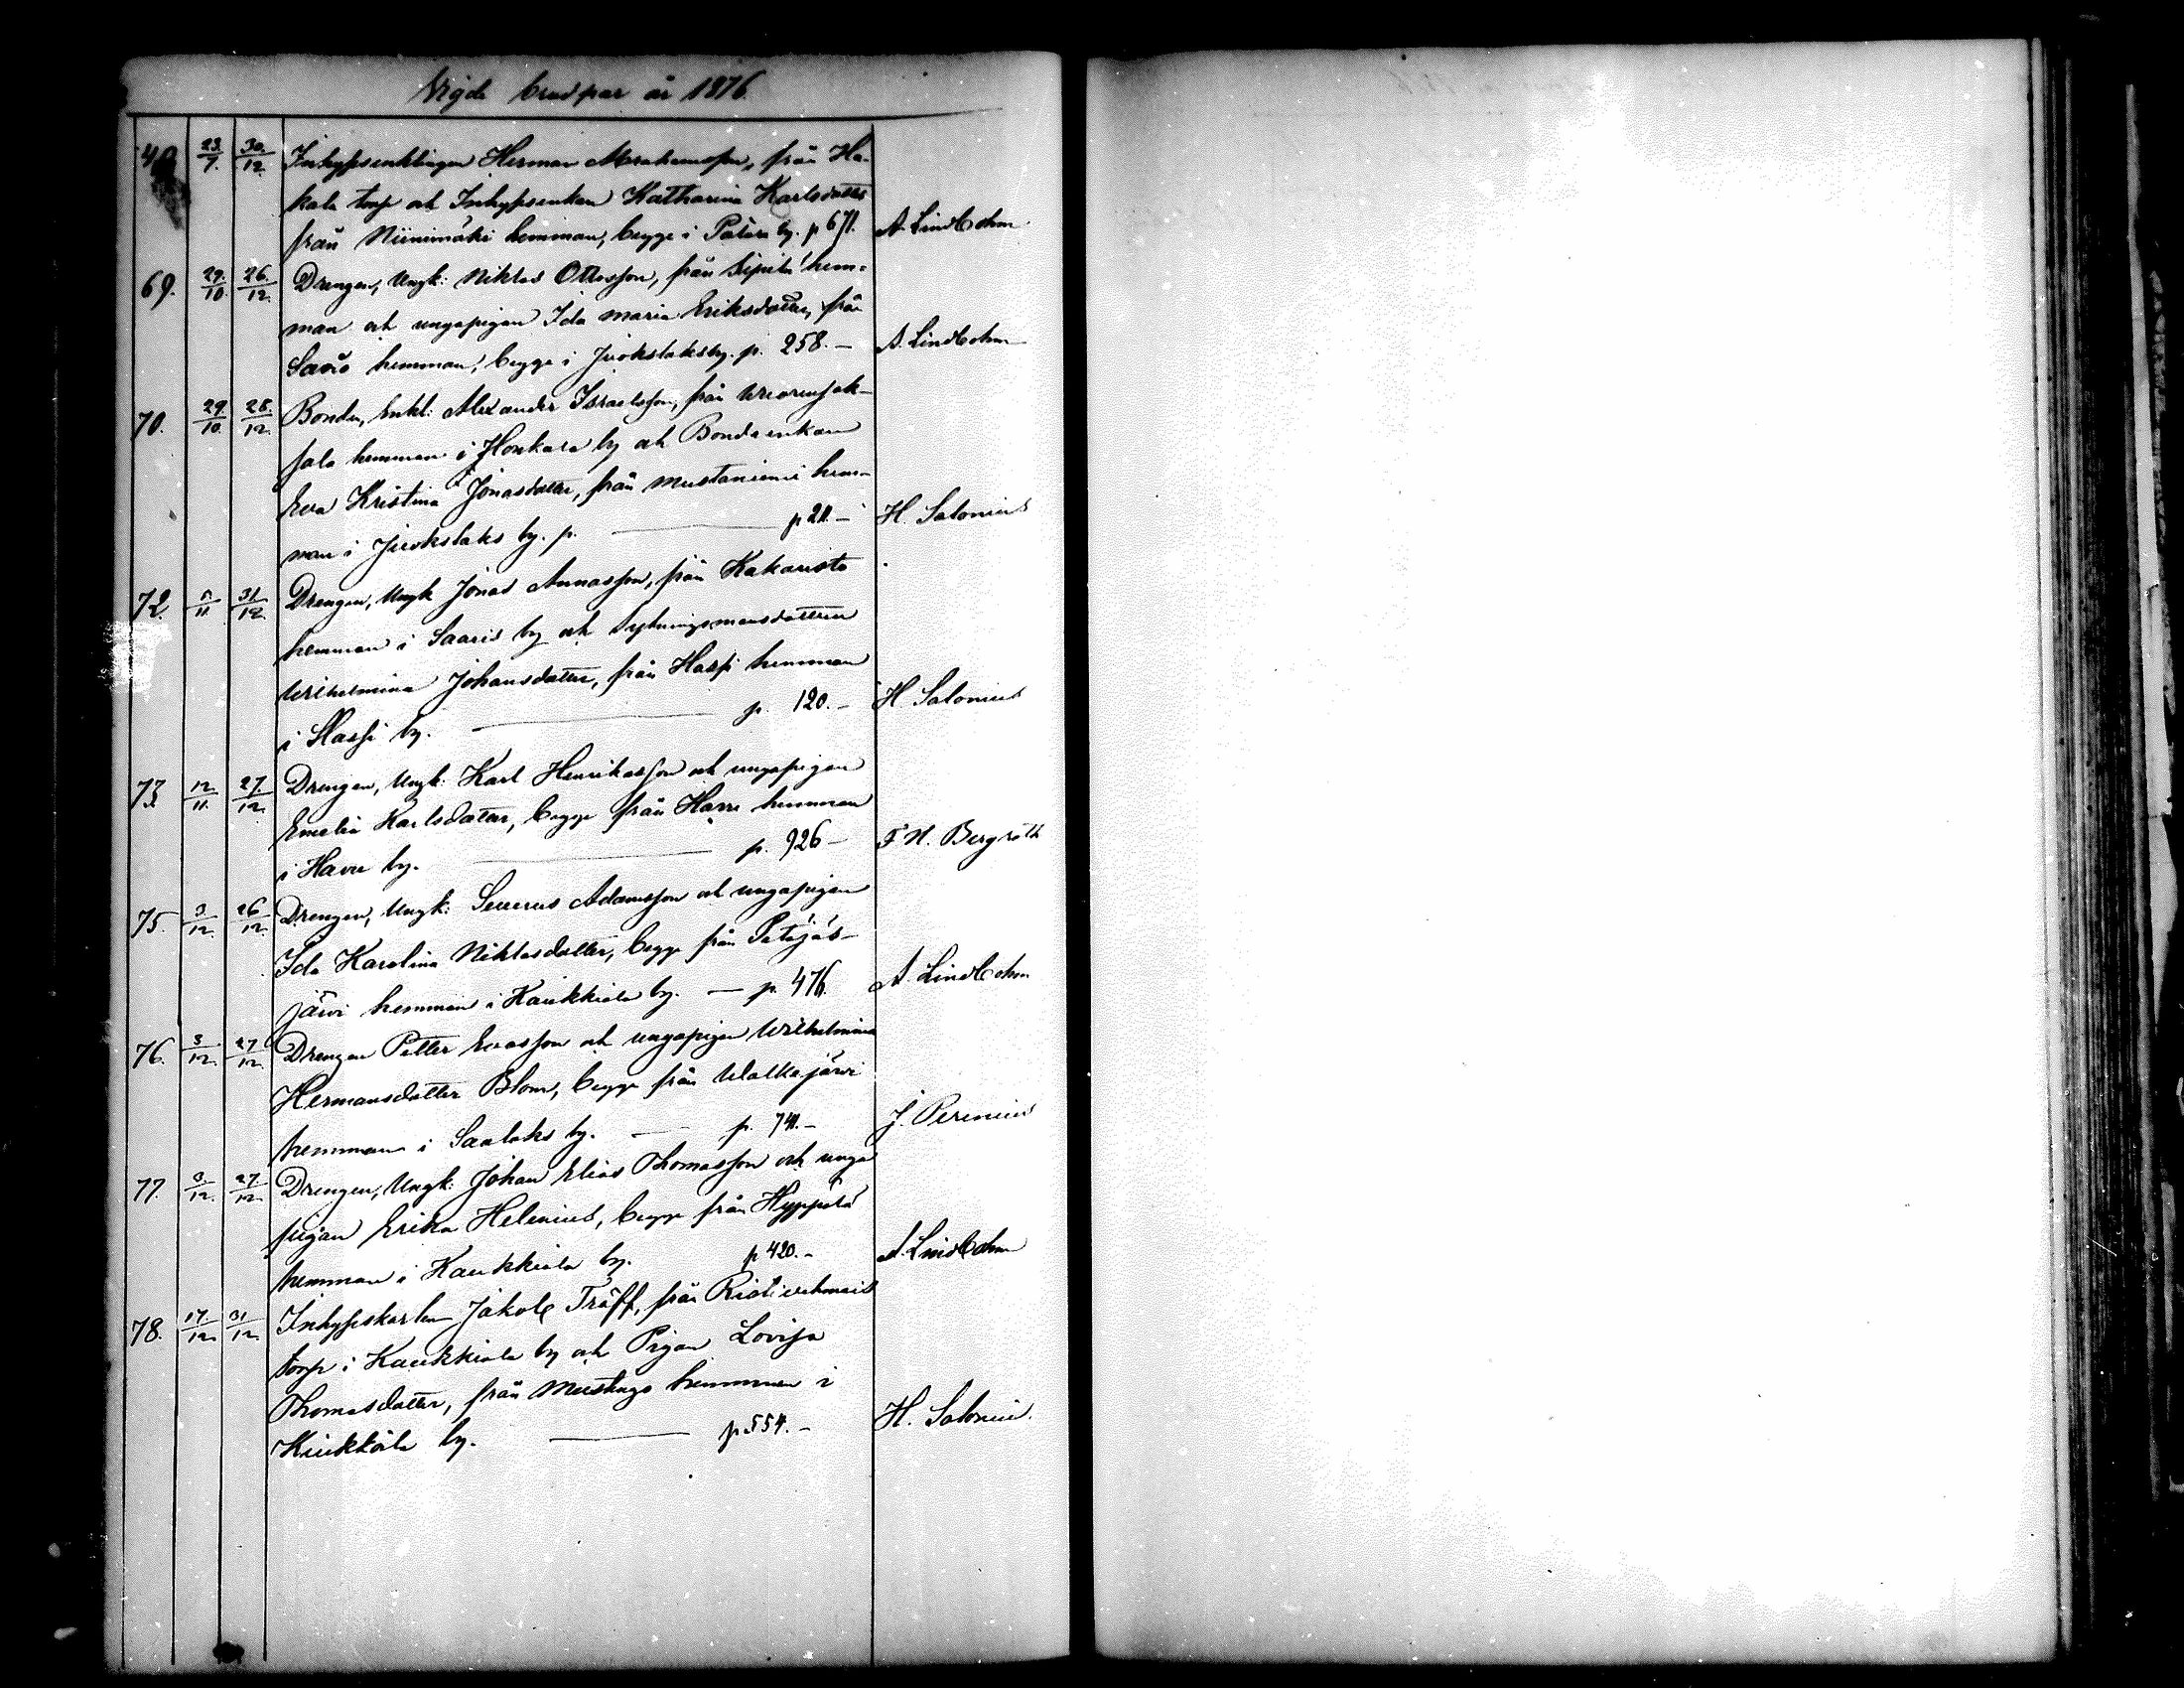 Vigde brudpar år 1876.
49 23/7. 30./12. Inhyssenklingen Herman Abrahamsson, från Ha-
kala torp och Inhysenkan Katharina Karlsdotter
från Niinimäki hemman, begge i by. p 671. A. Lindbohm
69. 29./10. 26./12. Drengen, Ungk: Niklas Ottosson, från Sipilä hem-
man och ungapigan Ida Maria Eriksdotter, från
hemman, begge i by. p. 258. — A. Lindbohm
70. 29/10. 28./12. Bonden, Enkl: Alexander Israelsson, från
hemman i Honkola by och Bondeenkan
Eva Kristina Jonasdotter, från Mustaniemi hem-
man i by. p. — p 211. — H. Salonius
72. 5/11. 31./12. Drengen, Ungk Jonas Annasson, från Kakaristo
hemman i Saaris by och Sytningsmansdottren
Wilhelmina Johansdotter, från Hassi hemman
i Hassi by. — p. 120. — H. Salonius
73. 12./11. 27./12. Drengen, Ungk: Karl Henriksson och ungapigan
Emelia Karlsdotter, begge från hemman
i by. — p. 926 — F. H. Bergroth
75. 3/12. 26/12. Drengen, Ungk: Severus Adamsson och ungapigan
Ida Karolina Niklasdotter, begge från Petäjäs-
järvi hemman i Kaukkiala by. — p. 476. A. Lindbohm
76. 3/12. 27/12. Drengen Petter Evasson och ungapigan Wilhelmina
Hermansdotter Blom, begge från Walkajärvi
hemman i Saalaks by. — p. 741. — J. Perenius
77. 3/12. 27/12. Drengen, Ungk: Johan Elias Thomasson och unga
pigan Erika Helenius, begge från Hyppölä
hemman i Kaukkiala by. p 420. — A. Lindbohm
78. 17./12. 31/12. Inhyseskarlen Jakob Träff, från
torp i Kaukkiala by och Pigan Lovisa
Thomasdotter, från hemman i
by. — p. 554. — H. Salonius.